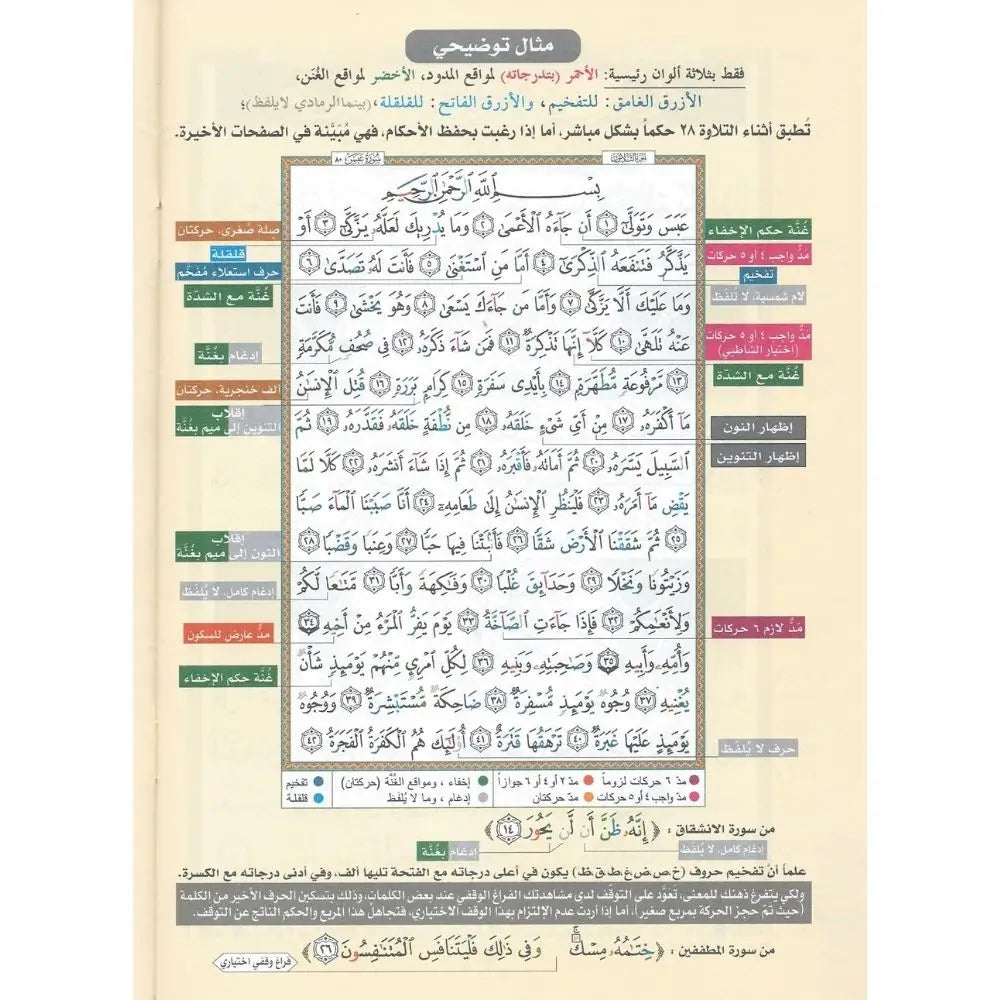 مثال توضيحي
فقط بثلاثة ألوان رئيسية: الأحمر (بتدرجاته) لمواقع المدود، الأخضر لمواقع الغُنَن،
الأزرق الغامق: للتفخيم، والأزرق الفاتح: للقلقلة، (بينما الرمادي لا يلفظ)؛
تُطبق أثناء التلاوة ٢٨ حكماً بشكل مباشر، أما إذا رغبت بحفظ الأحكام، فهي مُبيَّنة في الصفحات الأخيرة.
الجزء الثلاثون
سورة عبس ٨٠
بِسْمِ اللَّهِ الرَّحْمَٰنِ الرَّحِيمِ
عَبَسَ وَتَوَلَّىٰٓ ١ أَن جَآءَهُ ٱلْأَعْمَىٰ ٢ وَمَا يُدْرِيكَ لَعَلَّهُۥ يَزَّكَّىٰٓ ٣ أَوْ
يَذَّكَّرُ فَتَنفَعَهُ ٱلذِّكْرَىٰٓ ٤ أَمَّا مَنِ ٱسْتَغْنَىٰ ٥ فَأَنتَ لَهُۥ تَصَدَّىٰ ٦
وَمَا عَلَيْكَ أَلَّا يَزَّكَّىٰ ٧ وَأَمَّا مَن جَآءَكَ يَسْعَىٰ ٨ وَهُوَ يَخْشَىٰ ٩ فَأَنتَ
عَنْهُ تَلَهَّىٰ ١٠ كَلَّآ إِنَّهَا تَذْكِرَةٌ ١١ فَمَن شَآءَ ذَكَرَهُۥ ١٢ فِى صُحُفٍ مُّكَرَّمَةٍ
١٣ مَّرْفُوعَةٍ مُّطَهَّرَةٍۭ ١٤ بِأَيْدِى سَفَرَةٍ ١٥ كِرَامٍۭ بَرَرَةٍ ١٦ قُتِلَ ٱلْإِنسَٰنُ
مَآ أَكْفَرَهُۥ ١٧ مِنْ أَىِّ شَىْءٍ خَلَقَهُۥ ١٨ مِن نُّطْفَةٍ خَلَقَهُۥ فَقَدَّرَهُۥ ١٩ ثُمَّ
ٱلسَّبِيلَ يَسَّرَهُۥ ٢٠ ثُمَّ أَمَاتَهُۥ فَأَقْبَرَهُۥ ٢١ ثُمَّ إِذَا شَآءَ أَنشَرَهُۥ ٢٢ كَلَّا لَمَّا
يَقْضِ مَآ أَمَرَهُۥ ٢٣ فَلْيَنظُرِ ٱلْإِنسَٰنُ إِلَىٰ طَعَامِهِۦٓ ٢٤ أَنَّا صَبَبْنَا ٱلْمَآءَ صَبًّا
٢٥ ثُمَّ شَقَقْنَا ٱلْأَرْضَ شَقًّا ٢٦ فَأَنۢبَتْنَا فِيهَا حَبًّا ٢٧ وَعِنَبًا وَقَضْبًا ٢٨
وَزَيْتُونًا وَنَخْلًا ٢٩ وَحَدَآئِقَ غُلْبًا ٣٠ وَفَٰكِهَةً وَأَبًّا ٣١ مَّتَٰعًا لَّكُمْ
وَلِأَنْعَٰمِكُمْ ٣٢ فَإِذَا جَآءَتِ ٱلصَّآخَّةُ ٣٣ يَوْمَ يَفِرُّ ٱلْمَرْءُ مِنْ أَخِيهِ ٣٤
وَأُمِّهِۦ وَأَبِيهِ ٣٥ وَصَٰحِبَتِهِۦ وَبَنِيهِ ٣٦ لِكُلِّ ٱمْرِئٍ مِّنْهُمْ يَوْمَئِذٍ شَأْنٌ
يُغْنِيهِ ٣٧ وُجُوهٌ يَوْمَئِذٍ مُّسْفِرَةٌ ٣٨ ضَاحِكَةٌ مُّسْتَبْشِرَةٌ ٣٩ وَوُجُوهٌ
يَوْمَئِذٍ عَلَيْهَا غَبَرَةٌ ٤٠ تَرْهَقُهَا قَتَرَةٌ ٤١ أُو۟لَٰٓئِكَ هُمُ ٱلْكَفَرَةُ ٱلْفَجَرَةُ ٤٢
غُنَّة حكم الإخفاء
مدّ واجب ٤ أو ٥ حركات
تفخيم
لام شمسية، لا تُلفَظ
مدّ واجب ٤ أو ٥ حركات
(اختيار الشاطبي)
غُنَّة مع الشدّة
إظهار النون
إظهار التنوين
مَدّ لازم ٦ حركات
حرف لا يُلفَظ
صلة صُغرى، حركتان
قلقلة
حرف استعلاء مُفخَّم
غُنَّة مع الشدّة
إدغام بغُنَّة
ألف خنجرية، حركتان
إقلاب
التنوين إلى ميم بغُنَّة
إقلاب
النون إلى ميم بغُنَّة
إدغام كامل، لا يُلفَظ
مدّ عارض للسكون
غُنَّة حكم الإخفاء
مدّ ٦ حركات لزوماً
مدّ ٢ أو ٤ أو ٦ جوازاً
إخفاء ، ومواقع الغُنَّة (حركتان)
تفخيم
مدّ واجب ٤ أو ٥ حركات
مدّ حركتان
إدغام ، وما لا يُلفَظ
قلقلة
من سورة الانشقاق : ﴿ إِنَّهُۥ ظَنَّ أَن لَّن يَحُورَ ١٤ ﴾
إدغام كامل، لا يُلفَظ
إدغام بغُنَّة
علماً أنّ تفخيم حروف (خ.ص.ض.غ.ط.ق.ظ) يكون في أعلى درجاته مع الفتحة تليها ألف، وفي أدنى درجاته مع الكسرة.
ولكي يتفرغ ذهنك للمعنى، تعوَّد على التوقف لدى مشاهدتك الفراغ الوقفي عند بعض الكلمات، وذلك بتسكين الحرف الأخير من الكلمة
(حيث تمّ حجز الحركة بمربع صغير)، أما إذا أردت عدم الإلتزام بهذا الوقف الاختياري، فتجاهلْ هذا المربع والحكم الناتج عن التوقف.
من سورة المطففين : ﴿خِتَٰمُهُۥ مِسْكٌ وَفِى ذَٰلِكَ فَلْيَتَنَافَسِ ٱلْمُتَنَٰفِسُونَ ٢٦﴾
فراغ وقفي اختياري